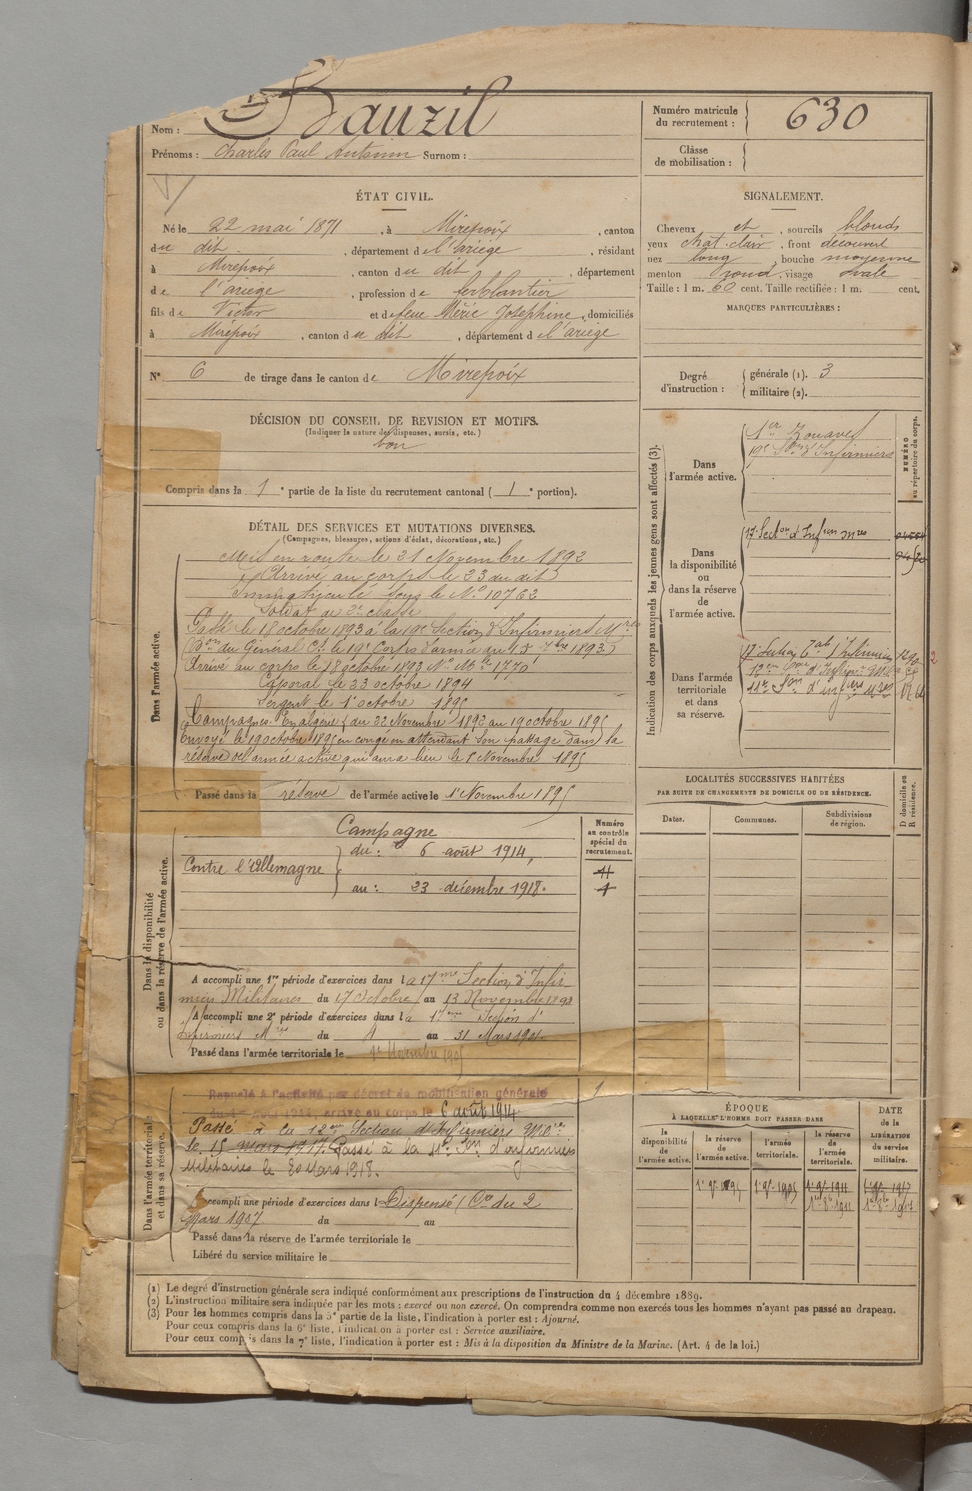 Nom : Bauzil
Prénoms : Charles Paul Antonin Surnom :
Numéro matricule du recrutement : 630
Classe de mobilisation :
ÉTAT CIVIL.
Né le 22 mai 1871, à Mirepoix, canton
du dit, département de l'ariège, résidant
à Mirepoix, canton du dit, département
de l'ariège, profession de ferblantier
fils de Victor et de feue Méric Josephine, domiciliés
à Mirepoix, canton du dit, département de l'ariège
N° 6 de tirage dans le canton de Mirepoix
SIGNALEMENT.
Cheveux et, sourcils blonds
yeux chat. clair, front découvert
nez long, bouche moyenne
menton rond, visage ovale
Taille : 1 m. 60 cent. Taille rectifiée : 1 m. cent.
MARQUES PARTICULIÈRES :
Degré d'instruction : générale (1). 3
militaire (2).
DÉCISION DU CONSEIL DE REVISION ET MOTIFS.
(Indiquer la nature des dispenses, sursis, etc.)
bon
Compris dans la 1e partie de la liste du recrutement cantonal (1e portion).
Indication des corps auxquels les jeunes gens sont affectés (3).
NUMÉRO au répertoire du corps.
Dans l'armée active.
1er Zouaves
19e Son d'Infirmiers
Dans la disponibilité ou dans la réserve de l'armée active.
17e Section d'Infiers mres
Dans l'armée territoriale et dans sa réserve.
DÉTAIL DES SERVICES ET MUTATIONS DIVERSES.
(Campagnes, blessures, actions d'éclat, décorations, etc.)
Dans l'armée active.
Mis en route le 21 Novembre 1892
Arrivé au corps le 23 du dit
Immatriculé sous le N° 10762
Soldat de 2e classe
Passé le 18 octobre 1893 à la 19e Section d'Infirmiers Mres
(Don du Général Ct le 19e Corps d'armée du 15 7bre 1893)
Arrivé au corps le 18 octobre 1893 N° Mle 1770
Caporal le 23 octobre 1894
Sergent le 1er octobre 1895
Campagnes : En algérie (du 22 Novembre 1892 au 19 octobre 1895
Envoyé le 19 octobre 1895 en congé en attendant son passage dans la
réserve de l'armée active qui aura lieu le 1er Novembre 1895
Passé dans la réserve de l'armée active le 1er Novembre 1895
LOCALITÉS SUCCESSIVES HABITÉES
PAR SUITE DE CHANGEMENTS DE DOMICILE OU DE RÉSIDENCE.
Dates. Communes. Subdivisions de région. D domicile ou R résidence.
Dans la disponibilité ou dans la réserve de l'armée active.
Numéro au contrôle spécial du recrutement.
Campagne
Contre l'Allemagne
du : 6 août 1914,
au : 23 décembre 1918.
A accompli une 1re période d'exercices dans la 17me Section d'Infir
miers Militaires du 17 Octobre au 13 Novembre 1898
A accompli une 2e période d'exercices dans la 17eme Section d'
Infirmiers Mres du 4 au 31 Mars 1901.
Passé dans l'armée territoriale le 1er Novembre 1905
Dans l'armée territoriale et dans sa réserve.
Rappelé à l'activité par décret de mobilisation générale
du 1er août 1914, arrivé au corps le 6 août 1914
Passé à la 12eme Section d'Infirmiers Mres
le 15 mars 1917. Passé à la 11e Son d'infirmiers
Militaires le 20 Mars 1918.
Accompli une période d'exercices dans l Dispensé (Cre du 2
Mars 1907 du au
Passé dans la réserve de l'armée territoriale le
Libéré du service militaire le
ÉPOQUE
À LAQUELLE L'HOMME DOIT PASSER DANS
la disponibilité de l'armée active. la réserve de l'armée active. l'armée territoriale. la réserve de l'armée territoriale.
DATE de la LIBÉRATION du service militaire.
1er 9bre 1895 1er 9bre 1905 1er 9bre 1911 1er 9bre 1917
(1) Le degré d'instruction générale sera indiqué conformément aux prescriptions de l'instruction du 4 décembre 1889.
(2) L'instruction militaire sera indiquée par les mots : exercé ou non exercé. On comprendra comme non exercés tous les hommes n'ayant pas passé au drapeau.
(3) Pour les hommes compris dans la 5e partie de la liste, l'indication à porter est : Ajourné.
Pour ceux compris dans la 6e liste, l'indication à porter est : Service auxiliaire.
Pour ceux compris dans la 7e liste, l'indication à porter est : Mis à la disposition du Ministre de la Marine. (Art. 4 de la loi.)